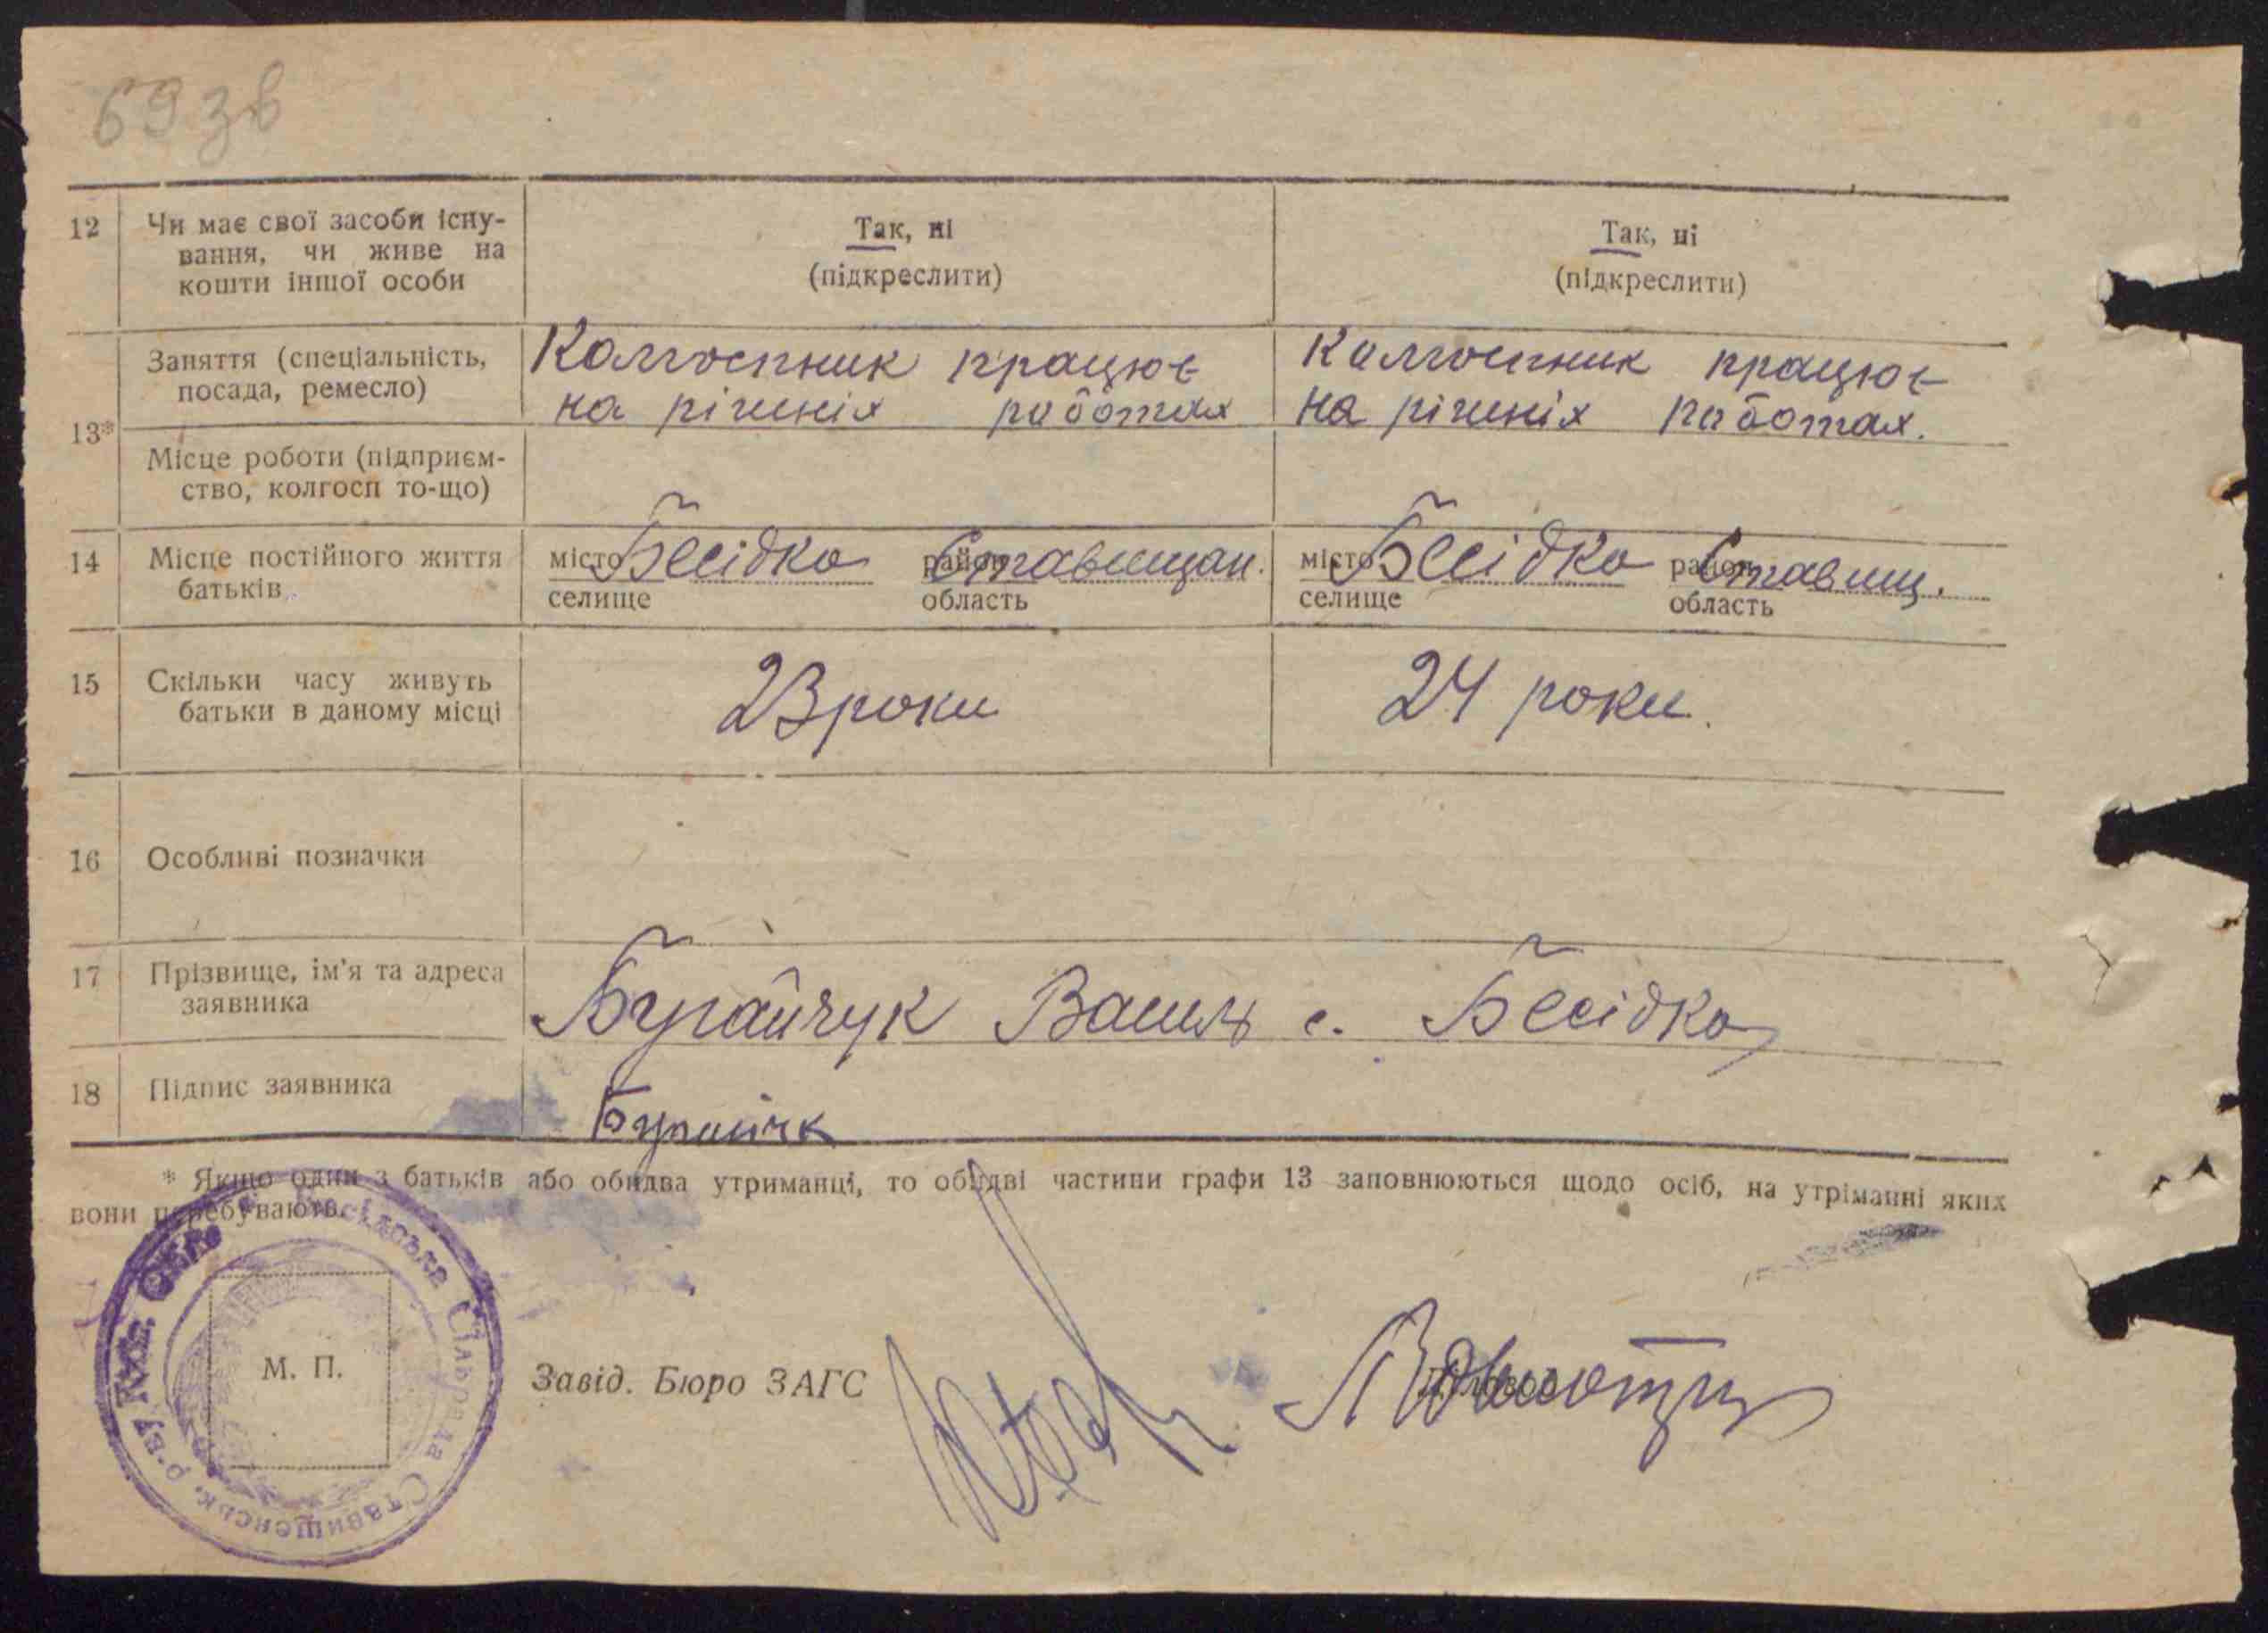 69 зв
12 Чи має свої засоби існу-
вання, чи живе на
кошти іншої особи
Так, ні
(підкреслити)
Так, ні
(підкреслити)
13*
Заняття (спеціальність,
посада, ремесло)
Колгоспник працює
на ріжніх работах
Колгоспник працює
на ріжніх работах.
Місце роботи (підприєм-
ство, колгосп то-що)
14 Місце постійного життя
батьків
місто Бесідка район Ставищан.
селище область
місто Бесідка район Ставищ.
селище область
15 Скільки часу живуть
батьки в даному місці
23 роки
24 роки.
16 Особливі позначки
17 Прізвище, ім'я та адреса
заявника
Бурайчук Василь с. Бесідка
18 Підпис заявника
* Якщо один з батьків або обидва утриманці, то обидві частини графи 13 заповнюються щодо осіб, на утріманні яких
вони перебувають.
Бесідська Сільрада Ставищенськ. р-ву
М. П.
Завід. Бюро ЗАГС